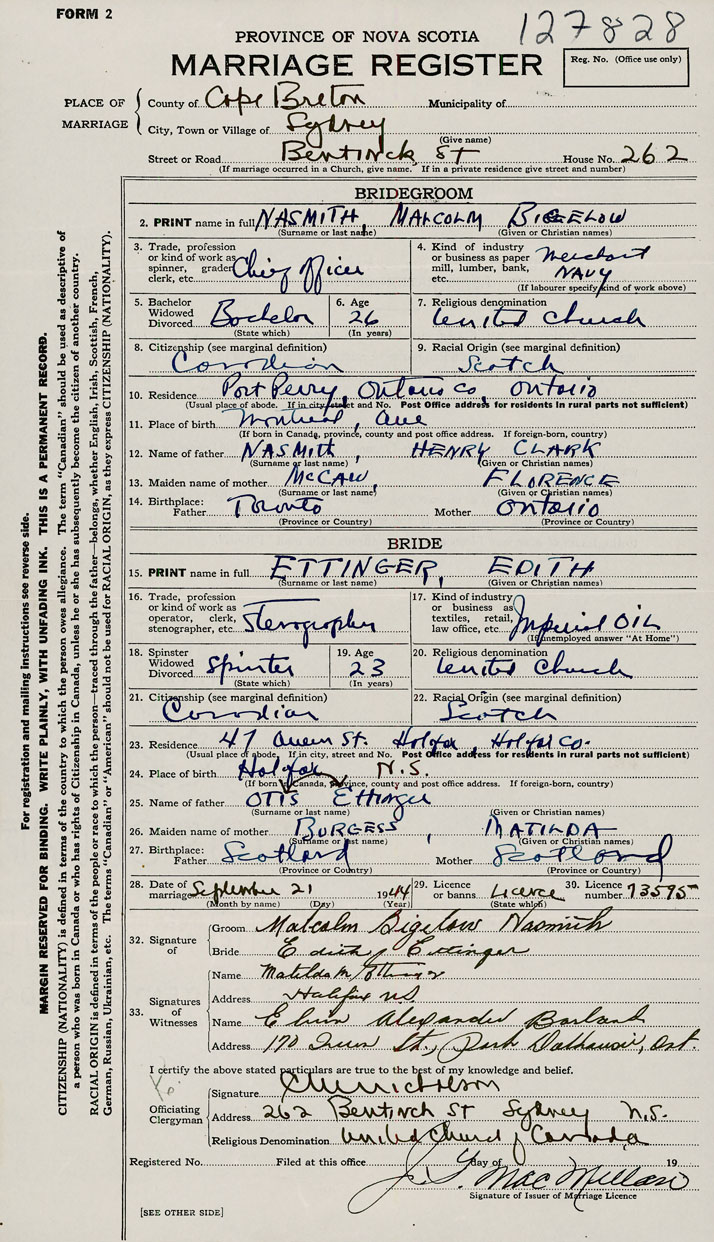 FORM 2
127828
PROVINCE OF NOVA SCOTIA
MARRIAGE REGISTER
Reg. No. (Office use only)
PLACE OF MARRIAGE
County of Cape Breton Municipality of
City, Town or Village of Sydney
(Give name)
Street or Road Bentinck St House No. 262
(If marriage occurred in a Church, give name. If in a private residence give street and number)
BRIDEGROOM
2. PRINT name in full NASMITH, MALCOLM BIGELOW
(Surname or last name) (Given or Christian names)
3. Trade, profession or kind of work as spinner, grader clerk, etc. Chief Officer
4. Kind of industry or business as paper mill, lumber, bank, etc. Merchant NAVY
(If labourer specify kind of work above)
5. Bachelor Widowed Divorced Bachelor
(State which)
6. Age 26
(In years)
7. Religious denomination United Church
8. Citizenship (see marginal definition) Canadian
9. Racial Origin (see marginal definition) Scotch
10. Residence Port Perry, Ontario Co, Ontario
(Usual place of abode. If in city, street and No. Post Office address for residents in rural parts not sufficient)
11. Place of birth Montreal, Que
(If born in Canada, province, county and post office address. If foreign-born, country)
12. Name of father NASMITH, HENRY CLARK
(Surname or last name) (Given or Christian names)
13. Maiden name of mother McCAW, FLORENCE
(Surname or last name) (Given or Christian names)
14. Birthplace: Father Toronto Mother Ontario
(Province or Country) (Province or Country)
BRIDE
15. PRINT name in full ETTINGER, EDITH
(Surname or last name) (Given or Christian names)
16. Trade, profession or kind of work as operator, clerk, stenographer, etc. Stenographer
17. Kind of industry or business as textiles, retail, law office, etc. Imperial OIL
(If unemployed answer "At Home")
18. Spinster Widowed Divorced Spinster
(State which)
19. Age 23
(In years)
20. Religious denomination United Church
21. Citizenship (see marginal definition) Canadian
22. Racial Origin (see marginal definition) Scotch
23. Residence 47 Queen St. Halifax, Halifax Co.
(Usual place of abode. If in city, street and No. Post Office address for residents in rural parts not sufficient)
24. Place of birth Halifax N.S.
(If born in Canada, province, county and post office address. If foreign-born, country)
25. Name of father OTIS Ettinger
(Surname or last name) (Given or Christian names)
26. Maiden name of mother BURGESS, MATILDA
(Surname or last name) (Given or Christian names)
27. Birthplace: Father Scotland Mother Scotland
(Province or Country) (Province or Country)
28. Date of marriage September 21 1944
(Month by name) (Day) (Year)
29. Licence or banns Licence
(State which)
30. Licence number 73595
32. Signature of
Groom Malcolm Bigelow Nasmith
Bride Edith Ettinger
33. Signatures of Witnesses
Name Matilda M Ettinger
Address Halifax NS
Name Alexander Borland
Address 170 Queen St., Port Dalhousie, Ont.
I certify the above stated particulars are true to the best of my knowledge and belief.
Officiating Clergyman
Signature Nicholson
Address 262 Bentinck St Sydney N.S.
Religious Denomination United Church of Canada
Registered No. Filed at this office day of 19
J. MacMillan
Signature of Issuer of Marriage Licence
[SEE OTHER SIDE]
For registration and mailing instructions see reverse side.
MARGIN RESERVED FOR BINDING. WRITE PLAINLY, WITH UNFADING INK. THIS IS A PERMANENT RECORD.
CITIZENSHIP (NATIONALITY) is defined in terms of the country to which the person owes allegiance. The term "Canadian" should be used as descriptive of
a person who was born in Canada or who has rights of Citizenship in Canada, unless he or she has subsequently become the citizen of another country.
RACIAL ORIGIN is defined in terms of the people or race to which the person—traced through the father—belongs, whether English, Irish, Scottish, French,
German, Russian, Ukrainian, etc. The terms "Canadian" or "American" should not be used for RACIAL ORIGIN, as they express CITIZENSHIP (NATIONALITY).